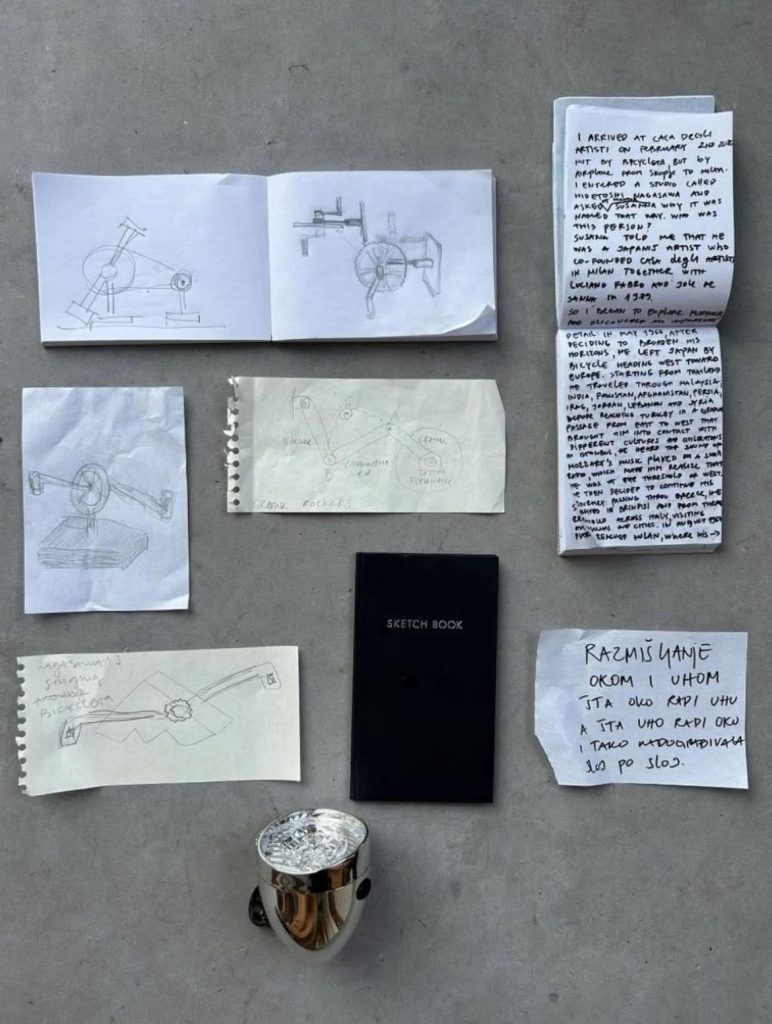 I ARRIVED AT CASA DEGLI
ARTISTI ON FEBRUARY 2ND
NOT BY BICYCLOTA, BUT BY
AIRPLANE FROM SKOPJE TO MILAN.
I ENTERED A STUDIO CALLED
HIDETOSHI NAGASAWA AND
ASKED SUSANNA WHY IT WAS
NAMED THAT WAY. WHO WAS
THIS PERSON?
SUSANA TOLD ME THAT HE
WAS A JAPANIS ARTIST WHO
CO-FOUNDED CASA degli ARTISTI
IN MILAN TOGETHER WITH
LUCIANO FABRO AND JOLE DE
SANNA IN 1979.
SO I BEGAN TO EXPLORE FURTHER
AND DISCOVERED AN IMPORTANT
DETAIL. IN MAY 1966, AFTER
DECIDING TO BROADEN HIS
HORIZONS, HE LEFT JAPAN BY
BICYCLE HEADING WEST TOWARD
EUROPE. STARTING FROM THAILAND
HE TRAVELED THROUGH MALAYSIA,
INDIA, PAKISTAN, AFGHANISTAN, PERSIA,
IRAQ, JORDAN, LEBANON AND SYRIA
BEFORE REACHING TURKEY IN A
PASSAGE FROM EAST TO WEST THAT
BROUGHT HIM INTO CONTACT WITH
DIFFERENT CULTURES
ISTANBUL, HE HEARD THE SOUND OF
MOZZART'S MUSIC PLAYED ON A SMALL
RADIO WHICH MADE HIM REALISE THAT
HE WAS AT THE THRESHOLD OF WEST.
HE THEN DECIDED TO CONTINUE HIS
JOURNEY. PASSING THRU GREECE, HE
IN BRINDISI AND FROM THERE
ACROSS ITALY, VISITING
AND CITIES. IN AUGUST
REACHED MILAN, WHERE HIS →
ROCKER
CRANK
A
B
CONNECTING
ROD
FLYWHEEL
CRANK ROCKERS
SKETCH BOOK
NAGASAWA'S
BICYCLOTA
RAZMIŠLJANJE
OKOM I UHOM
ŠTA OKO RADI UHU
A ŠTA UHO RADI OKU
I TAKO NADOGRADIVALA
SLOJ PO SLOJ.